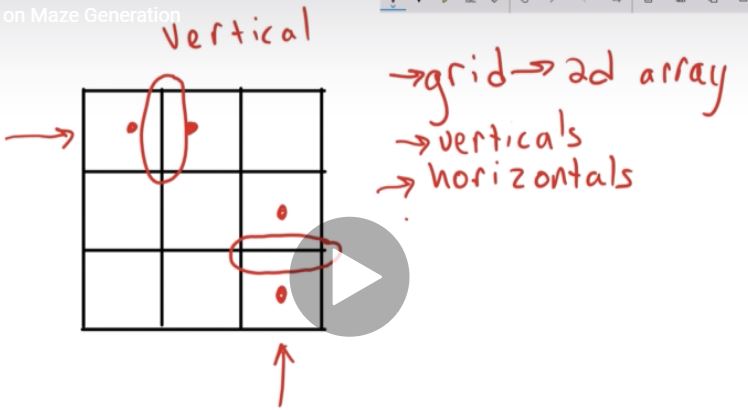 on Maze Generation
vertical
→grid→2d array
→vertica's
→horizontals